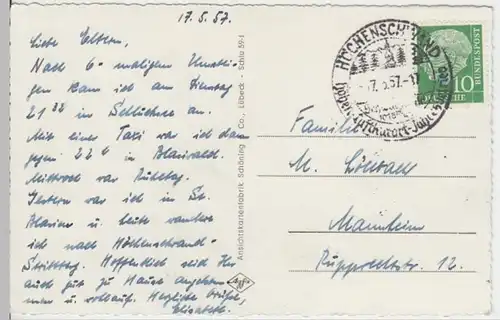 17.5.57.
Liebe Eltern,
Nach 6-maligem Umstei-
gen kam ich am Dienstag
21 22 in Schluchsee an.
Mit einer Taxi war ich dann
gegen 22 h in Blasiwald.
Mittwoch war Ruhetag.
Gestern war ich in St.
Blasien u. heute wandere
ich nach Höchenschwand-
Strittberg. Hoffentlich seid Ihr
auch gut zu Hause angekom-
men u. wohlauf. Herzliche Grüße,
Elisabeth.
Ansichtskartenfabrik Schöning & Co., Lübeck - Schlu 39-1
HÖCHENSCHWAND
7.5.57.-17
10
DEUTSCHE BUNDESPOST
Familie
M.
Mannheim
Rupprechtstr. 12.